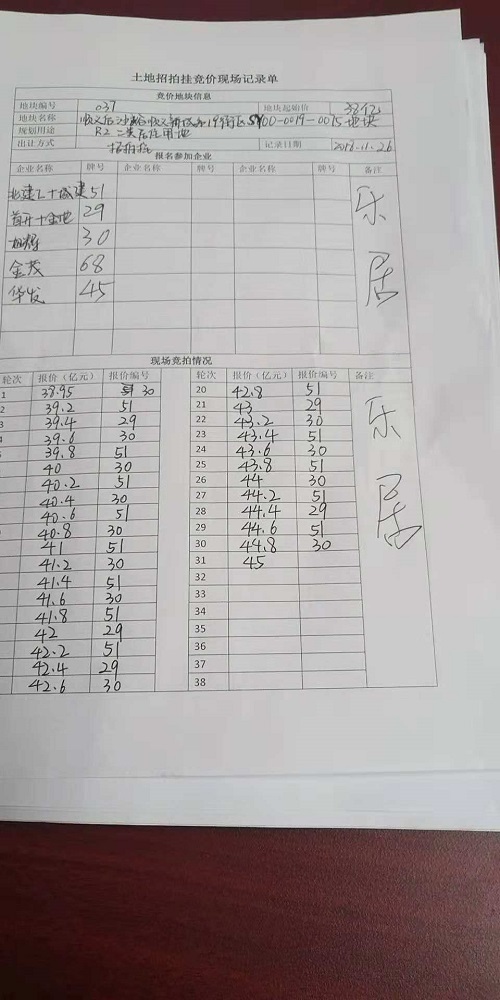 土地招拍挂竞价现场记录单
竞价地块信息
地块编号 037 地块起始价 38亿
地块名称 顺义区 顺义新城 19街区 00-0019-0015地块
规划用途 R2二类居住用地
出让方式 招拍挂 记录日期 2018.11.26
报名参加企业
企业名称 牌号 企业名称 牌号 企业名称 牌号 备注
北建工+城建 51 乐居
首开+金地 29
旭辉 30
金茂 68
华发 45
现场竞拍情况
轮次 报价（亿元） 报价编号 轮次 报价（亿元） 报价编号 备注
1 38.95 30 20 42.8 51 乐居
2 39.2 51 21 43 29
3 39.4 29 22 43.2 30
39.6 30 23 43.4 51
39.8 51 24 43.6 30
40 30 25 43.8 51
40.2 51 26 44 30
40.4 30 27 44.2 51
40.6 51 28 44.4 29
40.8 30 29 44.6 51
41 51 30 44.8 30
41.2 30 31 45
41.4 51 32
41.6 30 33
41.8 51 34
42 29 35
42.2 51 36
42.4 29 37
42.6 30 38